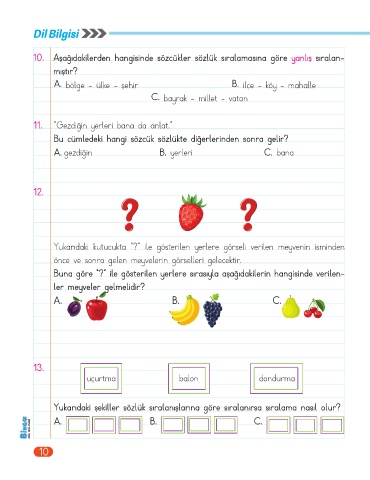 Dil Bilgisi
10. Aşağıdakilerden hangisinde sözcükler sözlük sıralamasına göre yanlış sıralan-
mıştır?
A. bölge - ülke - şehir
B. ilçe - köy - mahalle
C. bayrak - millet - vatan
11. "Gezdiğin yerleri bana da anlat."
Bu cümledeki hangi sözcük sözlükte diğerlerinden sonra gelir?
A. gezdiğin
B. yerleri
C. bana
12.
? ?
Yukarıdaki kutucukta "?" ile gösterilen yerlere görseli verilen meyvenin isminden
önce ve sonra gelen meyvelerin görselleri gelecektir.
Buna göre "?" ile gösterilen yerlere sırasıyla aşağıdakilerin hangisinde verilen-
ler meyveler gelmelidir?
A. B. C.
13.
uçurtma balon dondurma
Yukarıdaki şekiller sözlük sıralanışlarına göre sıralanırsa sıralama nasıl olur?
A. B. C.
BİNGO
10